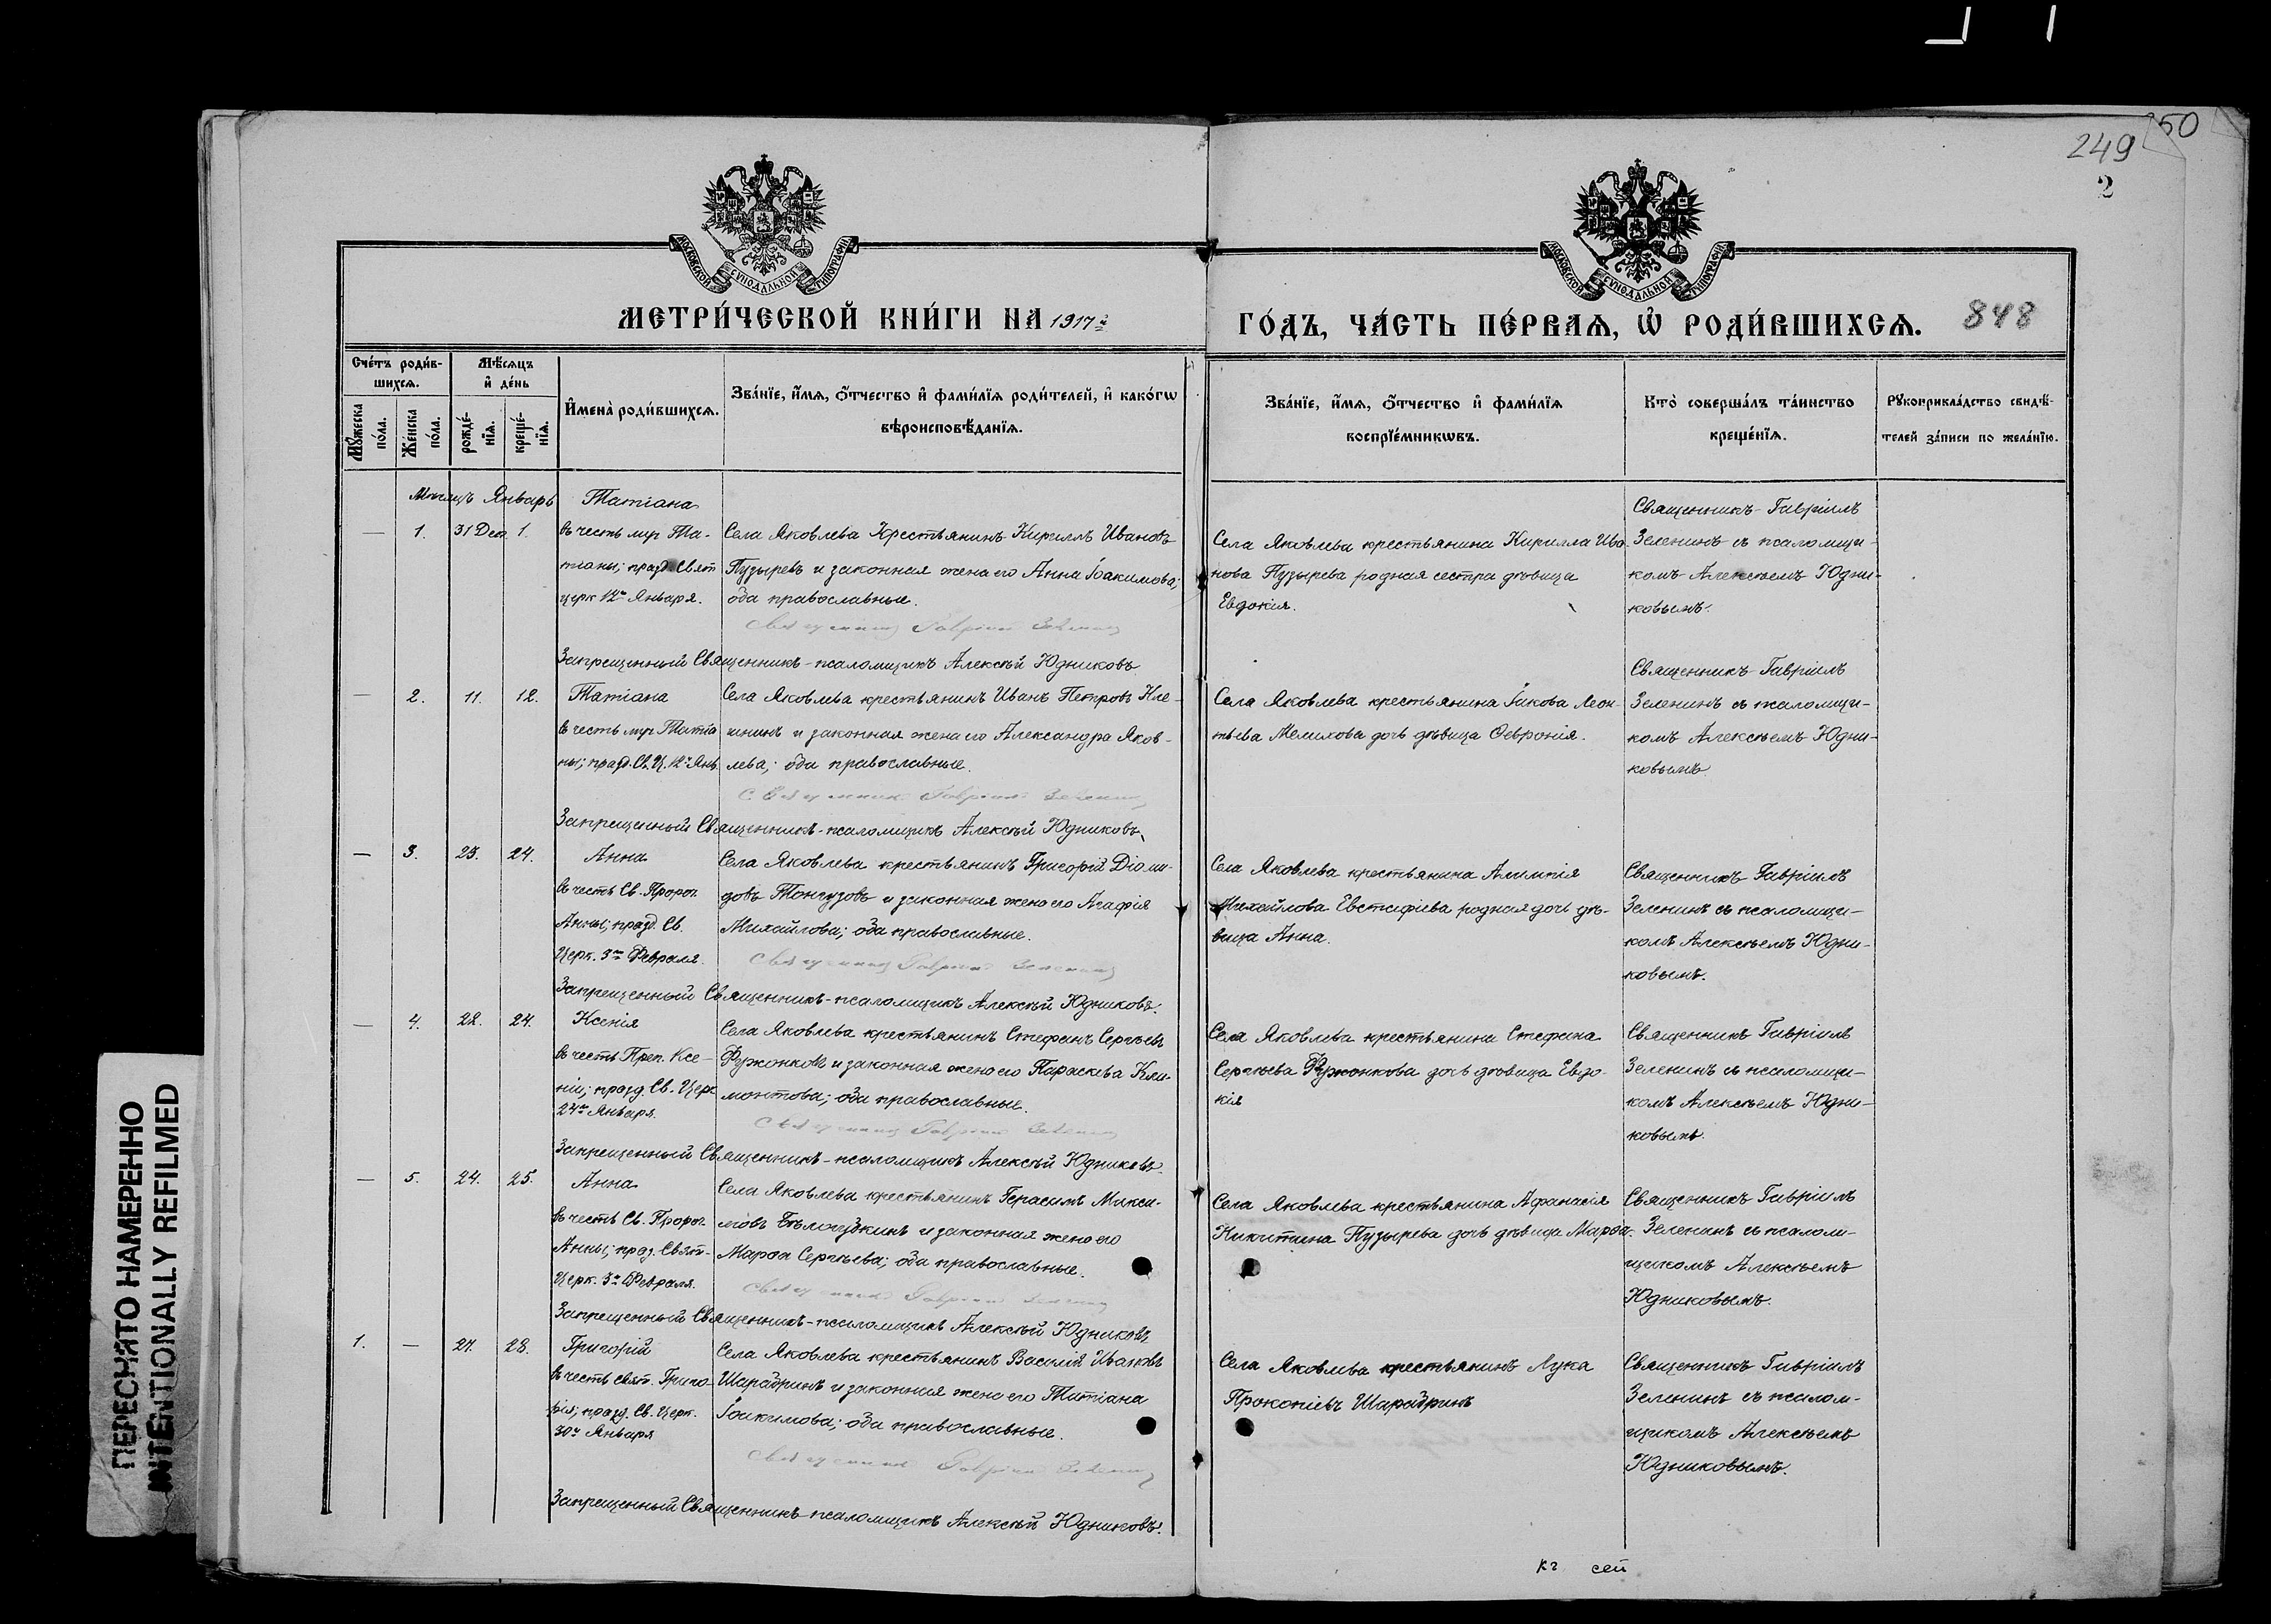 249
50
2
МОСКОВСКОЙ СѴНОДАЛЬНОЙ ТИПОГРАФІИ
МОСКОВСКОЙ СѴНОДАЛЬНОЙ ТИПОГРАФІИ
МЕТРИ́ЧЕСКОЙ КНИ́ГИ НА 1917й
ГО́ДЪ, ЧА́СТЬ ПЕ́РВАѦ, Ѡ РОДИ́ВШИХСѦ. 848
Сче́тъ роди́в-
шихсѧ.
Мѣ́сѧцъ
и҆ де́нь
Мꙋ́жеска по́ла.
Же́нска по́ла.
рожде́-нїѧ.
креще́-нїѧ.
И҆мена̀ роди́вшихсѧ.
Зва́нїе, и҆́мѧ, ѻ҆́тчество и҆ фами́лїѧ роди́телей, и҆ како́гѡ
вѣроисповѣ́данїѧ.
Зва́нїе, и҆́мѧ, ѻ҆́тчество и҆ фами́лїѧ
воспрїе́мникѡвъ.
Кто̀ соверша́лъ та́инство
креще́нїѧ.
Рꙋкоприкла́дство свидѣ́-
телей за́писи по жела́нїю.
Мѣсяцъ Январь
— 1. 31 Дек. 1.
Татіана
въ честь мур. Та-
тіаны; празд. Свят.
церк 12го Января.
Села Яковлева Крестьянинъ Кириллъ Ивановъ
Пузыревъ и законная жена его Анна Іоакимова;
оба православные.
Священникъ Гавріилъ Зеленинъ
Запрещенный Священникъ-псаломщикъ Алексѣй Юдниковъ
Села Яковлева крестьянина Кирилла Ива-
нова Пузырева родная сестра дѣвица
Евдокія.
Священникъ Гавріилъ
Зеленинъ съ псаломщи-
комъ Алексѣемъ Юдни-
ковымъ.
— 2. 11. 12.
Татіана
въ честь мур. Татіа
ны; празд. Св. Ц. 12го Янв.
Села Яковлева крестьянинъ Иванъ Петровъ Кле-
шнинъ и законная жена его Александра Яков-
лева; оба православные.
Священникъ Гавріилъ Зеленинъ
Запрещенный Священникъ-псаломщикъ Алексѣй Юдниковъ
Села Яковлева крестьянина Іакова Леон-
тьева Мелихова дочь дѣвица Ѳевронія.
Священникъ Гавріилъ
Зеленинъ съ псаломщи-
комъ Алексѣемъ Юдни-
ковымъ
— 3. 23. 24.
Анна
въ честь Св. Пророч.
Анны; празд. Св.
Церк. 3го Февраля.
Села Яковлева крестьянинъ Григорій Діоми-
довъ Тонгузовъ и законная жена его Агафія
Михайлова; оба православные.
Священникъ Гавріилъ Зеленинъ
Запрещенный Священникъ-псаломщикъ Алексѣй Юдниковъ.
Села Яковлева крестьянина Алимпія
Михайлова Евстафіева родная дочь дѣ-
вица Анна.
Священникъ Гавріилъ
Зеленинъ съ псаломщи-
комъ Алексѣемъ Юдни-
ковымъ.
— 4. 22. 24.
Ксенія
въ честь Преп. Ксе-
ніи; празд. Св. Церк
24го Января.
Села Яковлева крестьянинъ Стефанъ Сергѣевъ
Фержонковъ и законная жена его Параскева Кли-
монтова; оба православные.
Священникъ Гавріилъ Зеленинъ
Запрещенный Священникъ-псаломщикъ Алексѣй Юдниковъ.
Села Яковлева крестьянина Стефана
Сергѣева Фержонкова дочь дѣвица Евдо-
кія
Священникъ Гавріилъ
Зеленинъ съ псаломщи-
комъ Алексѣемъ Юдни-
ковымъ.
— 5. 24. 25.
Анна
въ честь Св. Пророч.
Анны; празд. Свят.
Церк. 3го Февраля.
Села Яковлева крестьянинъ Герасимъ Макси-
мовъ Бѣлогузкинъ и законная жена его
Марѳа Сергѣева; оба православные.
Священникъ Гавріилъ Зеленинъ
Запрещенный Священникъ-псаломщикъ Алексѣй Юдниковъ
Села Яковлева крестьянина Афанасія
Никитина Пузырева дочь дѣвица Марѳа.
Священникъ Гавріилъ
Зеленинъ съ псалом-
щикомъ Алексѣемъ
Юдниковымъ.
1. — 27. 28.
Григорій
въ честь свят. Григо-
рія; празд. Св. Церк.
30го Января
Села Яковлева крестьянинъ Василій Ивановъ
Шарабринъ и законная жена его Татіана
Іоакимова; оба православные.
Священникъ Гавріилъ Зеленинъ
Запрещенный Священникъ-псаломщикъ Алексѣй Юдниковъ.
Села Яковлева крестьянинъ Лука
Прокопіевъ Шарабринъ
Священникъ Гавріилъ
Зеленинъ съ псалом-
щикомъ Алексѣемъ
Юдниковымъ.
кг сей
ПЕРЕСНЯТО НАМЕРЕННО
INTENTIONALLY REFILMED